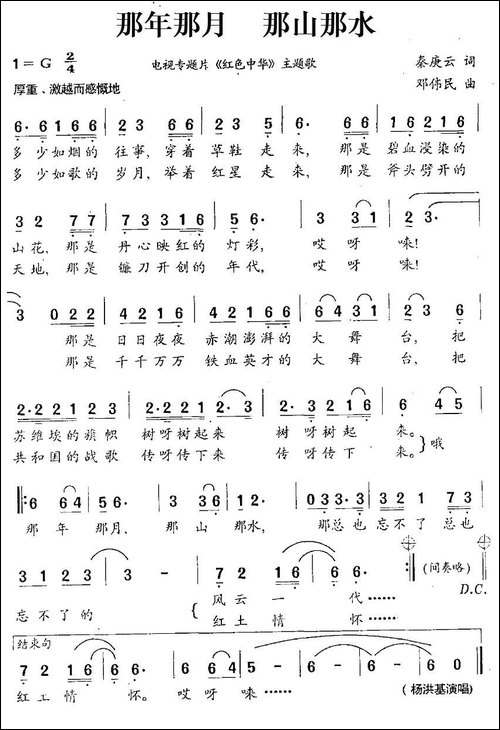 那年那月　那山那水
1=G 2/4
电视专题片《红色中华》主题歌
秦庚云 词
厚重、激越而感慨地
邓伟民 曲
6· 6 1 6 6 | 2 3 2 1 6 | 2 3 5 6 | 3 3 2 1 6 6
多少如烟的 往事, 穿着 草鞋 走来, 那是 碧血浸染的
多少如歌的 岁月, 举着 红星 走来, 那是 斧头劈开的
3 2 7 7 | 7 3 3 2 1 6 | 5 6· | 3 3 1 | 2 3·
山花, 那是 丹心映红的 灯彩, 哎呀 唻!
天地, 那是 镰刀开创的 年代, 哎呀 唻!
3 3 3 | 4 2 1 6 | 4 2 1 6 6 | 6 4 3 1 | 2 3 6
那是 日日夜夜 赤潮澎湃的 大舞台, 把
那是 千千万万 铁血英才的 大舞台, 把
2·2 2 1 | 2·2 2 1 2·3 | 2·3 2 1 6 | 6· 4 5
苏维埃的旗帜 树呀树起来 树呀树起来。
共和国的战歌 传呀传下来 传呀传下来。 哦
6 6 4 | 5 6· | 3 6 4 3 | 1 2· | 0 3 3·3 | 3 2 1 2 7 3
那年 那月, 那山 那水, 那总也 忘不了 总也
3 1 2 3 | 3 - | 7 2 | 1 6 6 | 6 - | 6 - (间奏略)
D.C.
忘不了的 风云一代……
红土情怀……
结束句
7 2 1 6 6 | 6· 6 | 6 6 4 | 3 6 | 6 - | 6 - | 6 0
红土情怀。哎呀唻……
(杨洪基演唱)